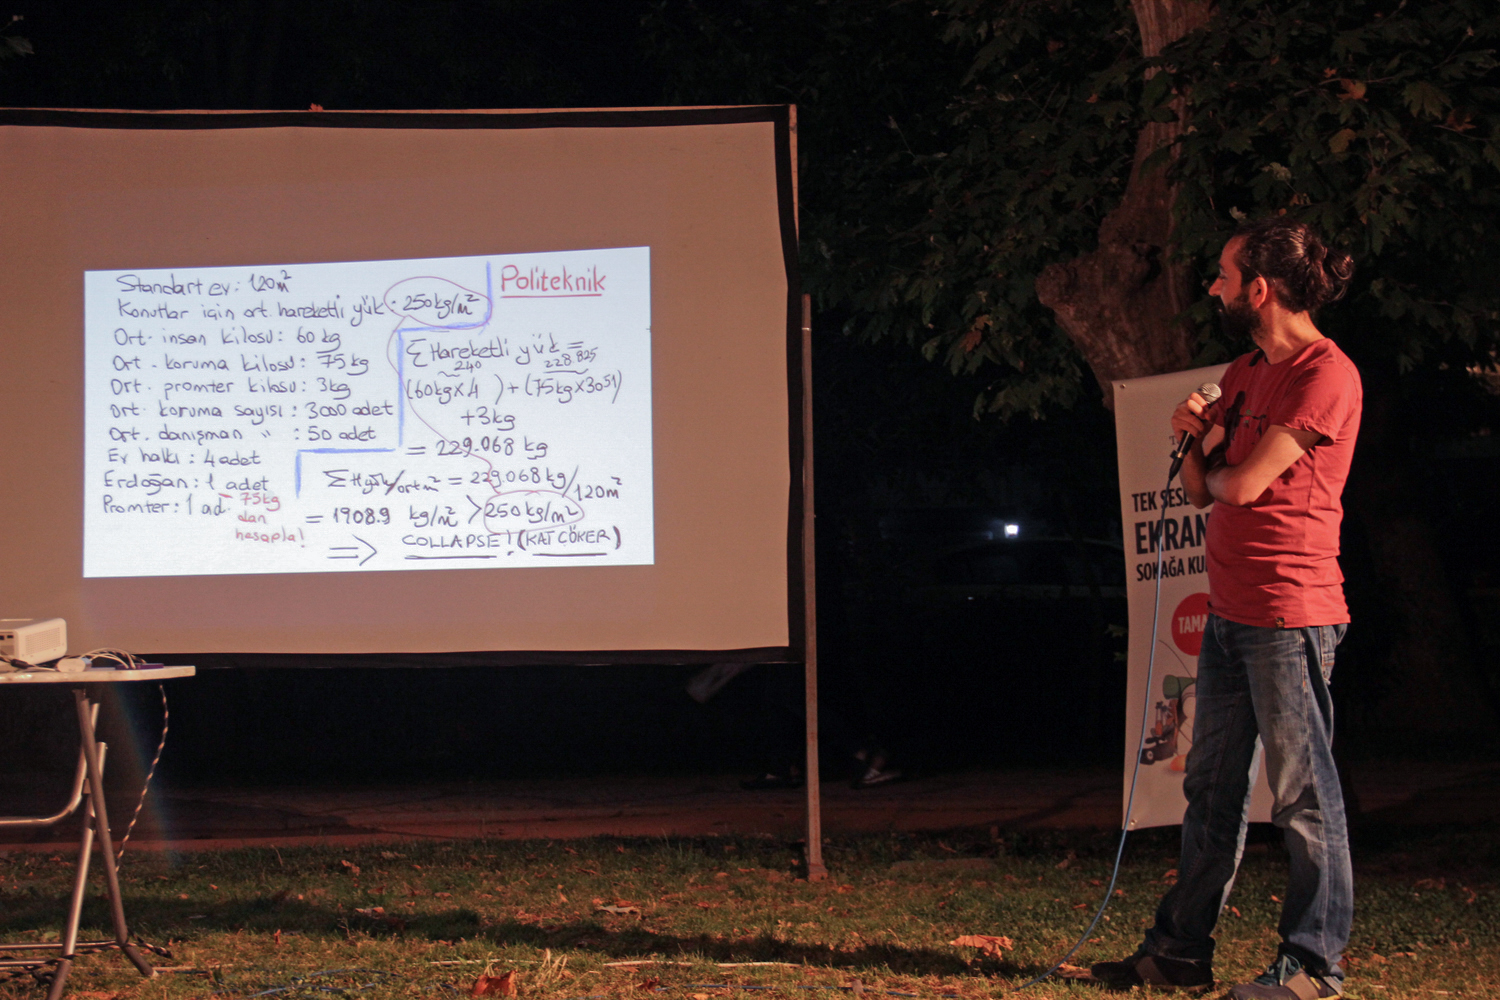 Standart ev: 120m²
Konutlar için ort. hareketli yük: 250kg/m²
Ort. insan kilosu: 60 kg
Ort. koruma kilosu: 75 kg
Ort. promter kilosu: 3kg
Ort. koruma sayısı: 3000 adet
Ort. danışman " : 50 adet
Ev halkı: 4 adet
Erdoğan: 1 adet
Promter: 1 ad.
75kg
alan
hesapla!
Politeknik
Σ Hareketli yük =
240 228 825
(60kgx4) + (75kgx3051)
+3kg
= 229.068 kg
= 229.068 kg/120m²
= 1908.9 kg/m² > 250kg/m²
⇒ COLLAPSE! (KAT ÇÖKER)
TEK SESL
EKRAN
SOKAĞA KU
TAMA